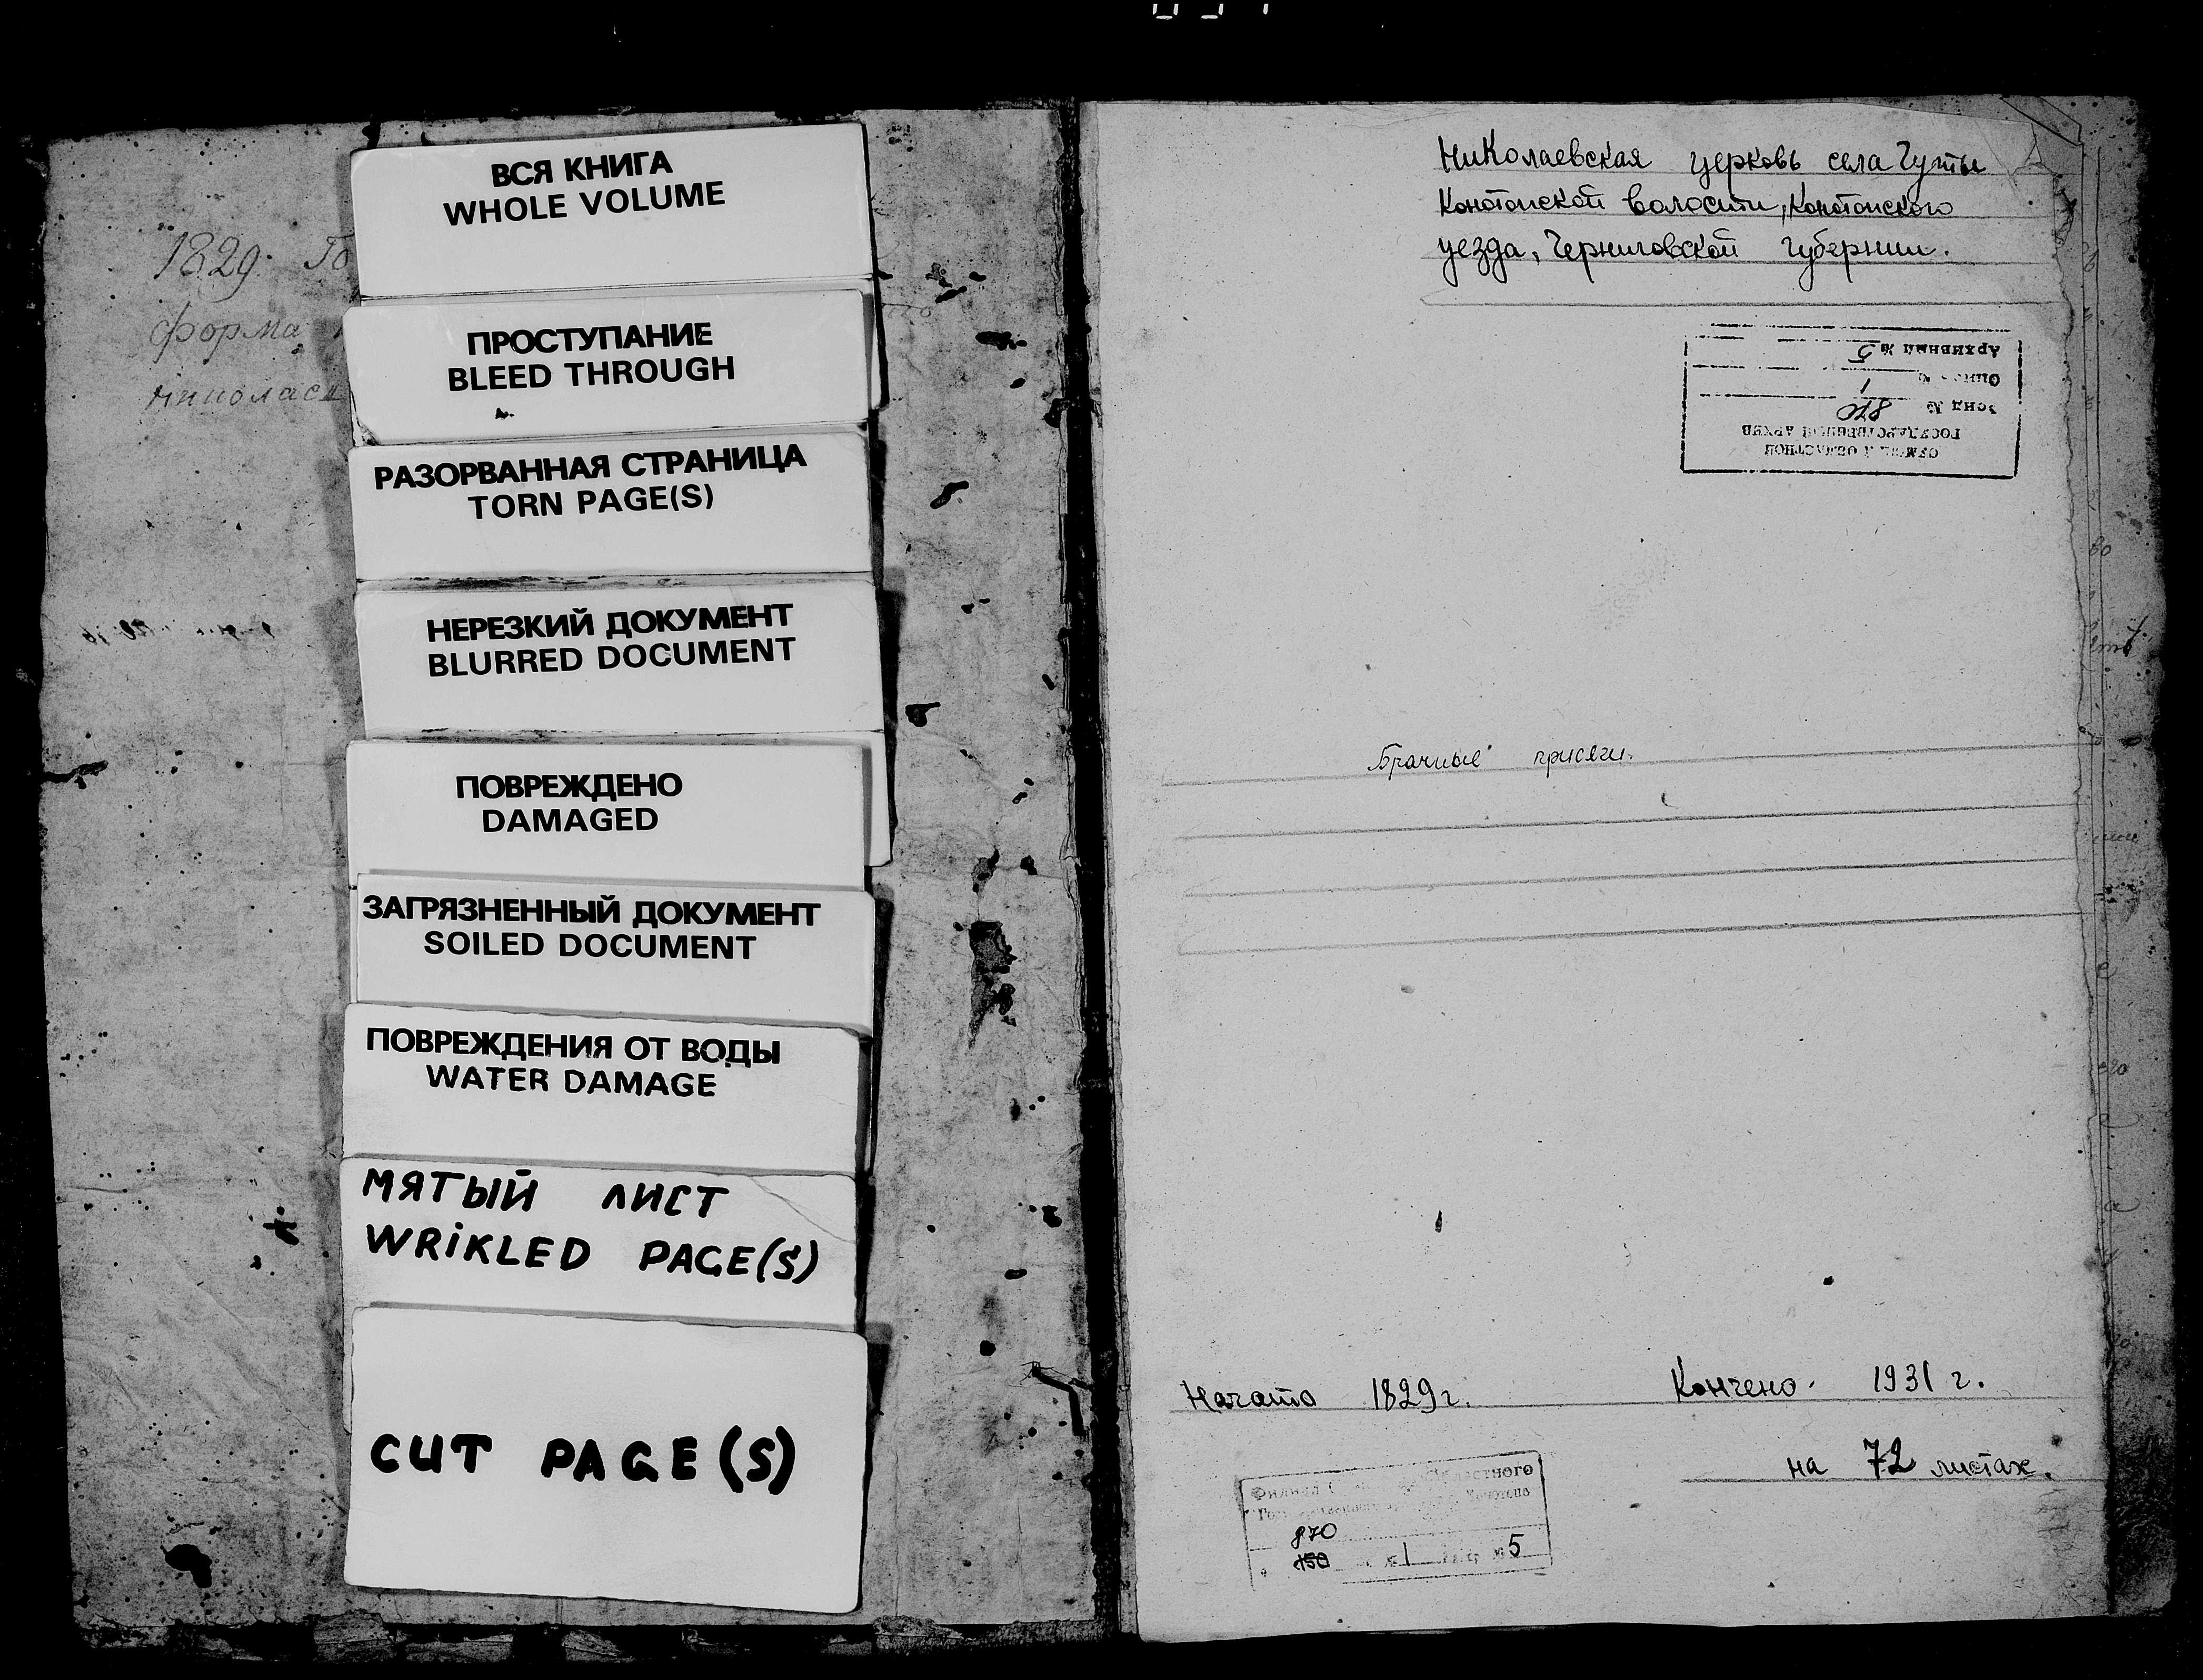 1829. Го
форма
ВСЯ КНИГА
WHOLE VOLUME
ПРОСТУПАНИЕ
BLEED THROUGH
РАЗОРВАННАЯ СТРАНИЦА
TORN PAGE(S)
НЕРЕЗКИЙ ДОКУМЕНТ
BLURRED DOCUMENT
ПОВРЕЖДЕНО
DAMAGED
ЗАГРЯЗНЕННЫЙ ДОКУМЕНТ
SOILED DOCUMENT
ПОВРЕЖДЕНИЯ ОТ ВОДЫ
WATER DAMAGE
МЯТЫЙ ЛИСТ
WRiKLED PAGE(S)
CUT PAGE(S)
Николаевская церковь села Гуты
Конотопской волости, Конотопского
уезда, Черниговской губернии.
ОБЛАСТНОЙ
ГОСУДАРСТВЕННЫЙ АРХИВ
№ 870
1
Архивный № 5
Брачные присяги.
Начато 1829 г. Кончено 1931 г.
на 72 листах.
Филиал областного
870
150 1 5